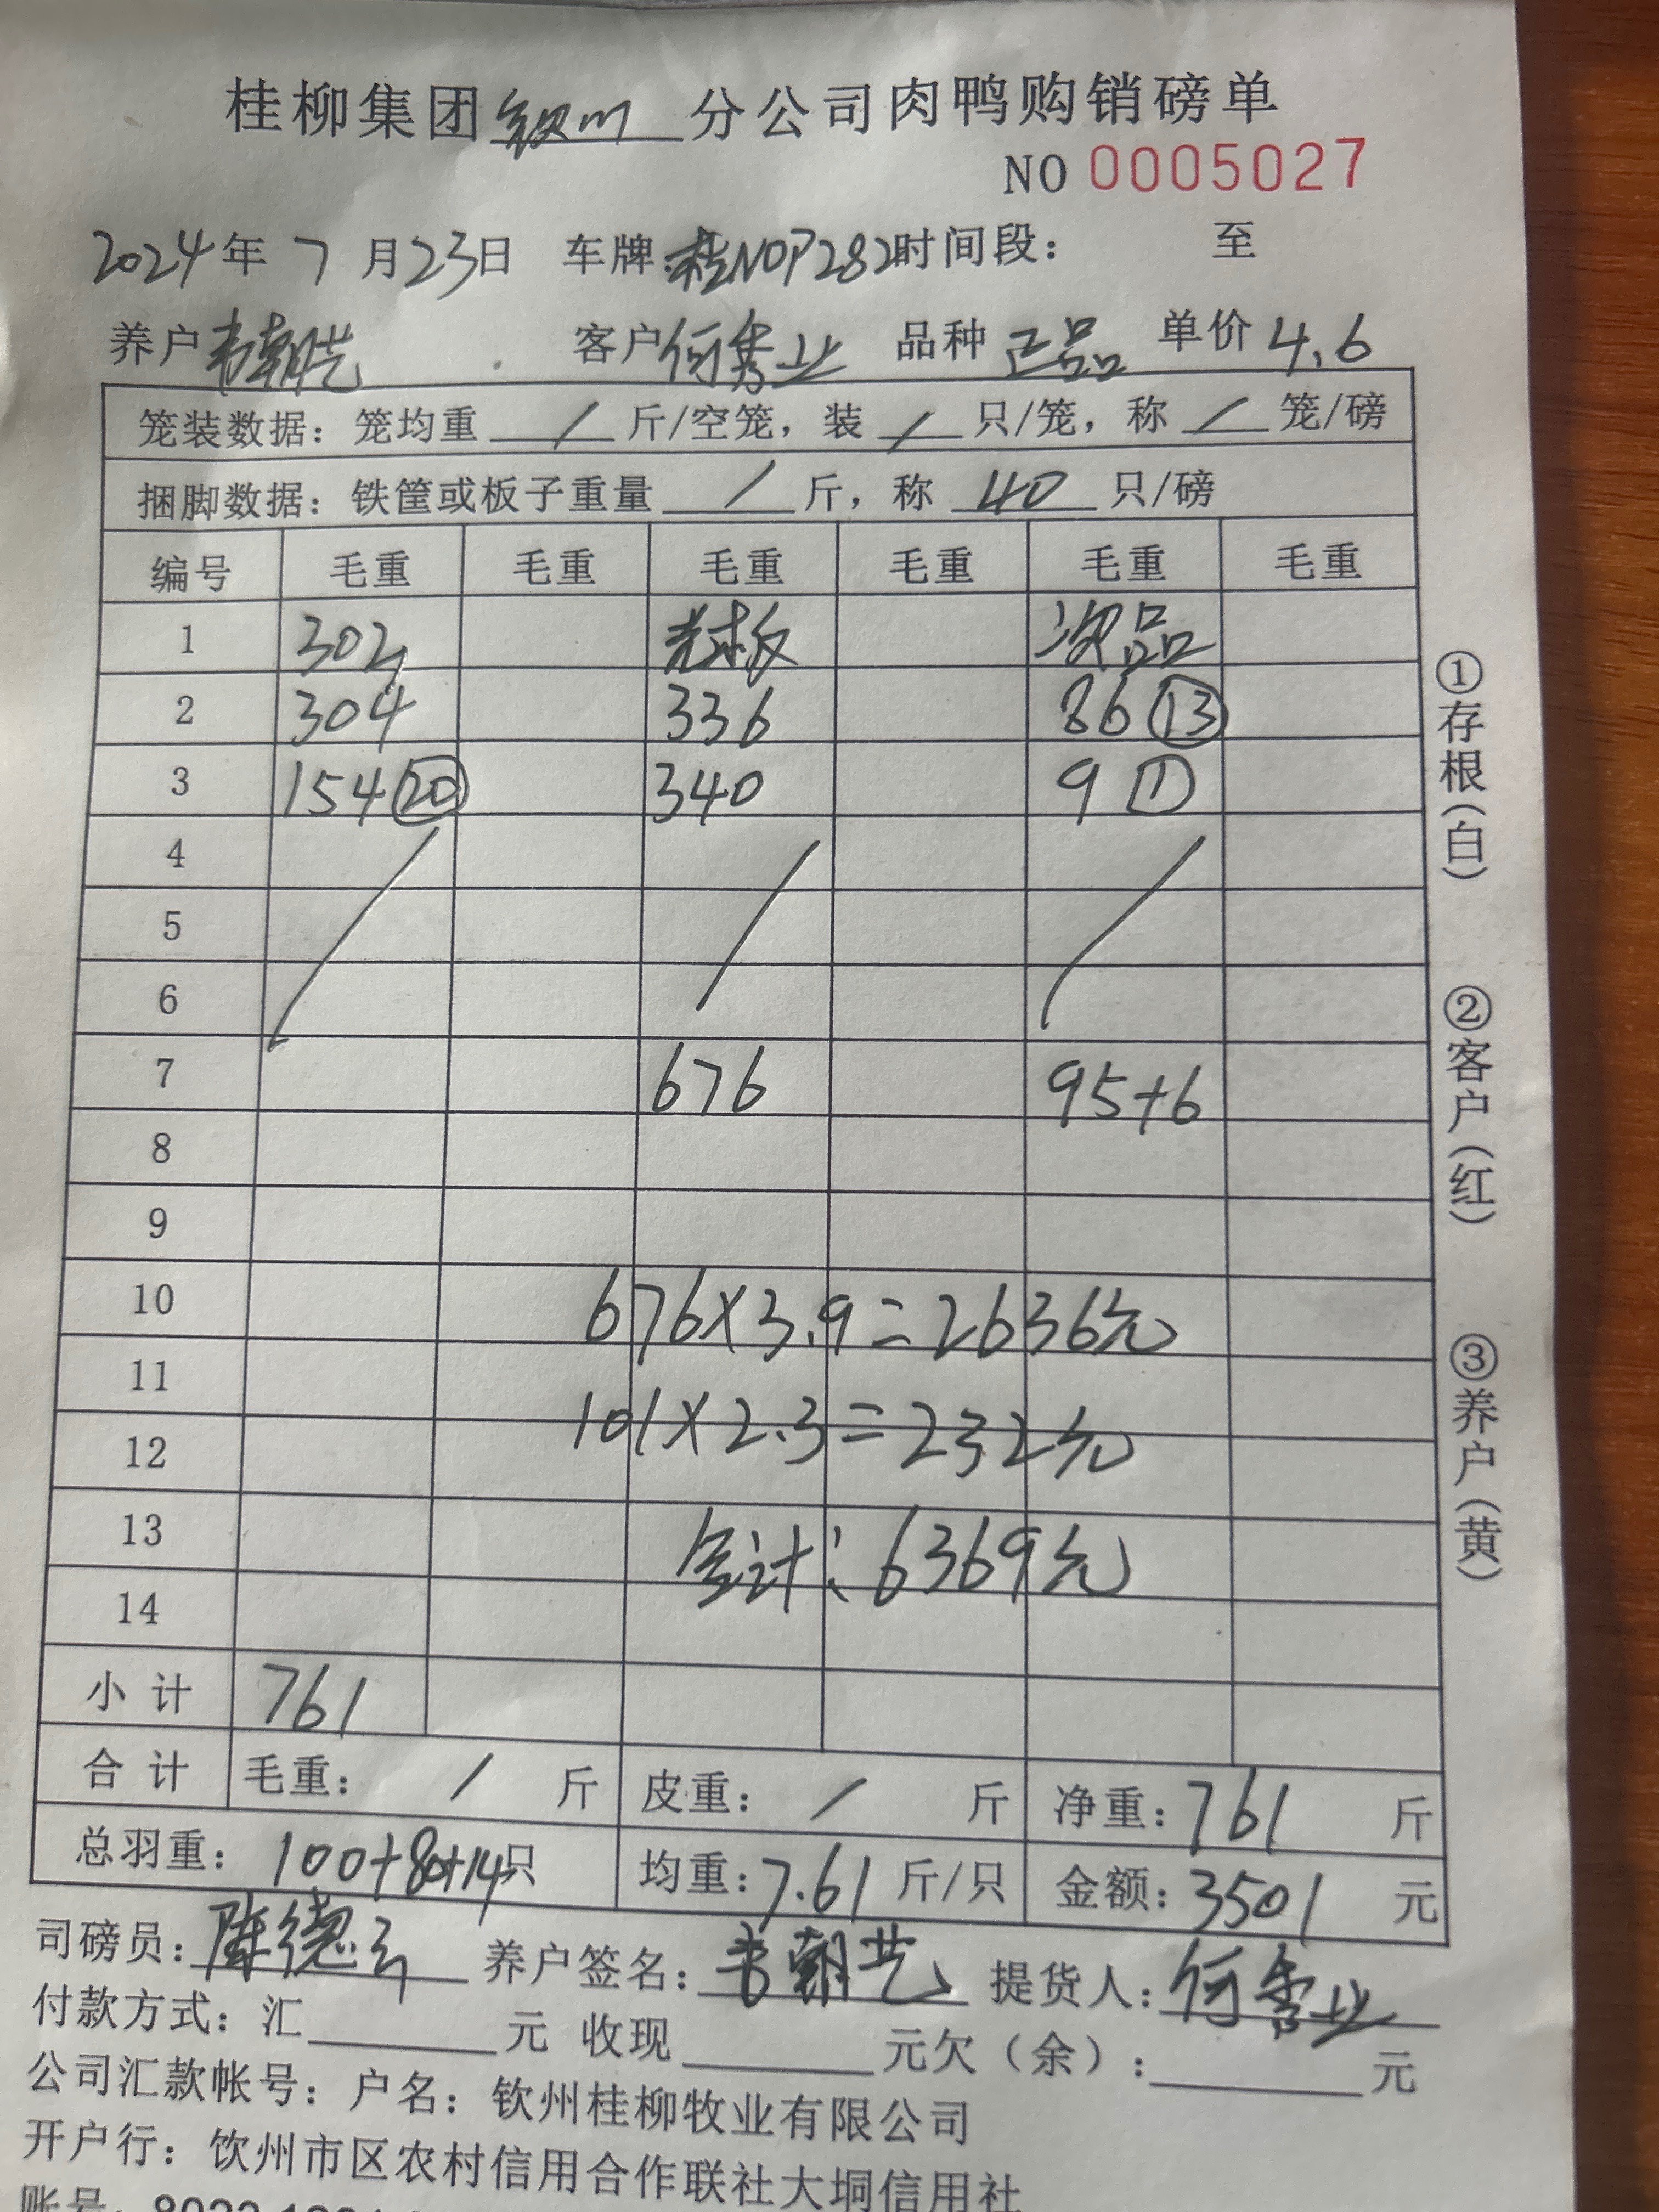 桂柳集团钦州分公司肉鸭购销磅单
NO 0005027
2024年7月23日 车牌:桂NOP282时间段: 至
养户韦朝艺 客户何秀业 品种 正品 单价4.6
笼装数据:笼均重 / 斤/空笼,装 / 只/笼,称 / 笼/磅
捆脚数据:铁筐或板子重量 / 斤,称 40 只/磅
编号 毛重 毛重 毛重 毛重 毛重 毛重
1 303 次品
2 304 336 86 ⑬
3 154 ⑳ 340 9 ①
4
5
6
7 676 95+6
8
9
10 676×3.9=2636元
11
12 101×2.3=232元
13 合计:6369元
14
小计 761
合计 毛重: / 斤 皮重: / 斤 净重:761 斤
总羽重:100+80+14只 均重:7.61斤/只 金额:3501元
司磅员:陈德 养户签名:韦朝艺 提货人:何秀业
付款方式:汇 元 收现 元欠(余): 元
公司汇款帐号:户名:钦州桂柳牧业有限公司
开户行:饮州市区农村信用合作联社大垌信用社
账号:
①存根(白)
②客户(红)
③养户(黄)